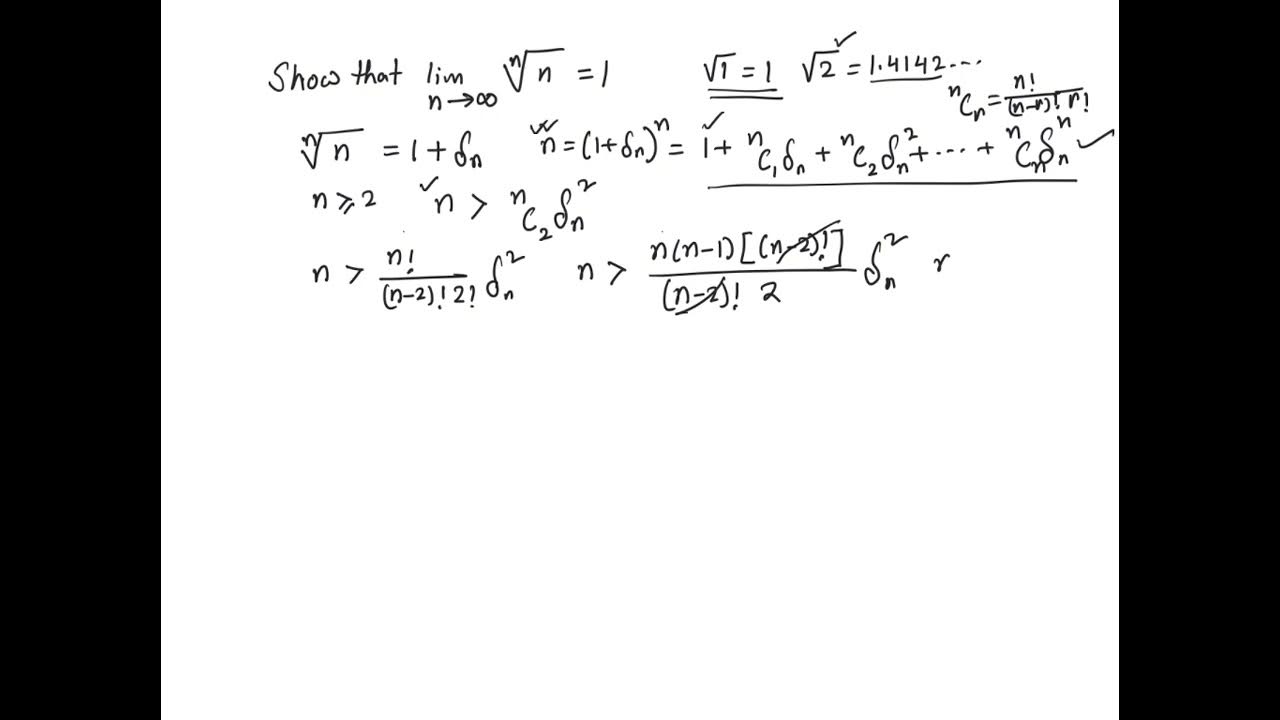 Show that lim n→∞ ⁿ√n = 1 √1 = 1 √2 = 1.4142...
ⁿCₙ = n!/((n-r)! r!)
ⁿ√n = 1 + δₙ n = (1+δₙ)ⁿ = 1 + ⁿC₁δₙ + ⁿC₂δₙ² + ... + ⁿCₙδₙⁿ
n ≥ 2 n > ⁿC₂δₙ²
n > n!/((n-2)! 2!) δₙ² n > n(n-1)[(n-2)!]/((n-2)! 2) δₙ² r